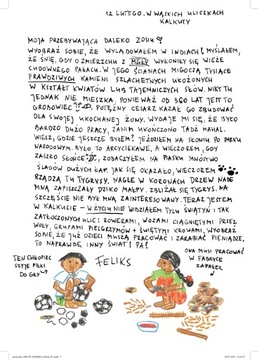 12 LUTEGO. W WĄSKICH ULICZKACH
KALKUTY
MOJA PRZEBYWAJĄCA DALEKO ZOŚKO
WYOBRAŹ SOBIE, ŻE WYLĄDOWAŁEM W INDIACH! MYŚLAŁEM,
ŻE ŚNIĘ, GDY O ZMIERZCHU Z MGŁY WYŁONIŁY SIĘ WIEŻE
CUDOWNEGO PAŁACU. W JEGO ŚCIANACH MIGOCZĄ TYSIĄCE
PRAWDZIWYCH KAMIENI SZLACHETNYCH UŁOŻONYCH
W KSZTAŁT KWIATÓW LUB TAJEMNICZYCH SŁÓW. NIKT TU
JEDNAK NIE MIESZKA, PONIEWAŻ OD 360 LAT JEST TO
GROBOWIEC. POTĘŻNY CESARZ KAZAŁ GO ZBUDOWAĆ
DLA SWOJEJ UKOCHANEJ ŻONY. WYDAJE MI SIĘ, ŻE BYŁO
BARDZO DUŻO PRACY, ZANIM UKOŃCZONO TADŹ MAHAL.
WIESZ, GDZIE JESZCZE BYŁEM? JEŹDZIŁEM NA SŁONIU PO PARKU
NARODOWYM. BYŁO TO ARCYCIEKAWE, A WIECZOREM, GDY
ZASZŁO SŁOŃCE, ZOBACZYŁEM NA PIASKU MNÓSTWO
ŚLADÓW DUŻYCH ŁAP. JAK SIĘ OKAZAŁO, WIECZOREM
RZĄDZĄ TU TYGRYSY. NAGLE W KORONACH DRZEW NADE
MNĄ ZAPISZCZAŁY DZIKO MAŁPY. ZBLIŻAŁ SIĘ TYGRYS. NA
SZCZĘŚCIE NIE BYŁ MNĄ ZAINTERESOWANY. TERAZ JESTEM
W KALKUCIE – W ŻYCIU NIE WIDZIAŁEM TYLU ŚWIĄTYŃ I TAK
ZATŁOCZONYCH ULIC: ROWERAMI, WOZAMI CIĄGNIĘTYMI PRZEZ
WOŁY, GRUPAMI PIELGRZYMÓW I ŚWIĘTYMI KROWAMI. WYOBRAŹ
SOBIE, ŻE JUŻ DZIECI MUSZĄ PRACOWAĆ I ZARABIAĆ PIENIĄDZE.
TO NAPRAWDĘ INNY ŚWIAT! PA!
FELIKS
TEN CHŁOPIEC
SZYJE PIŁKI
DO GRY
ONA MUSI PRACOWAĆ
W FABRYCE
ZAPAŁEK